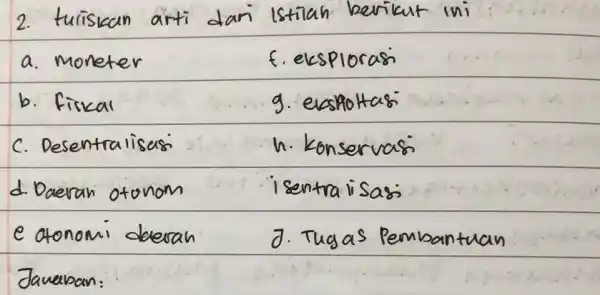 2. tuliskan arti dari istilah berikut ini :
a. moneter f. eksplorasi
b. fiskal g. eksploitasi
c. Desentralisasi h. konservasi
d. Daerah otonom i sentralisasi
e otonomi daerah J. Tugas Pembantuan
Jawaban: